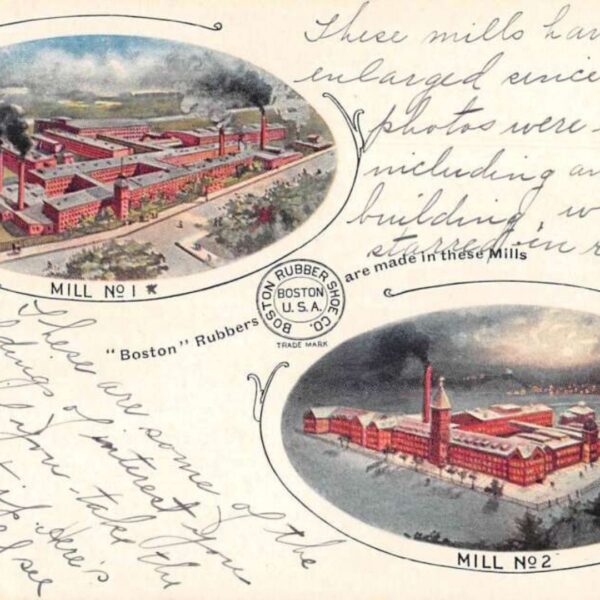 These mills hav
enlarged since
photos were
including an
building w
starred in r
MILL No 1 *
"Boston" Rubbers
BOSTON RUBBER SHOE CO.
BOSTON
U.S.A.
TRADE MARK
are made in these Mills
These are some of the
ldings of interest you
if you take the
trip. Here's
see
MILL No 2